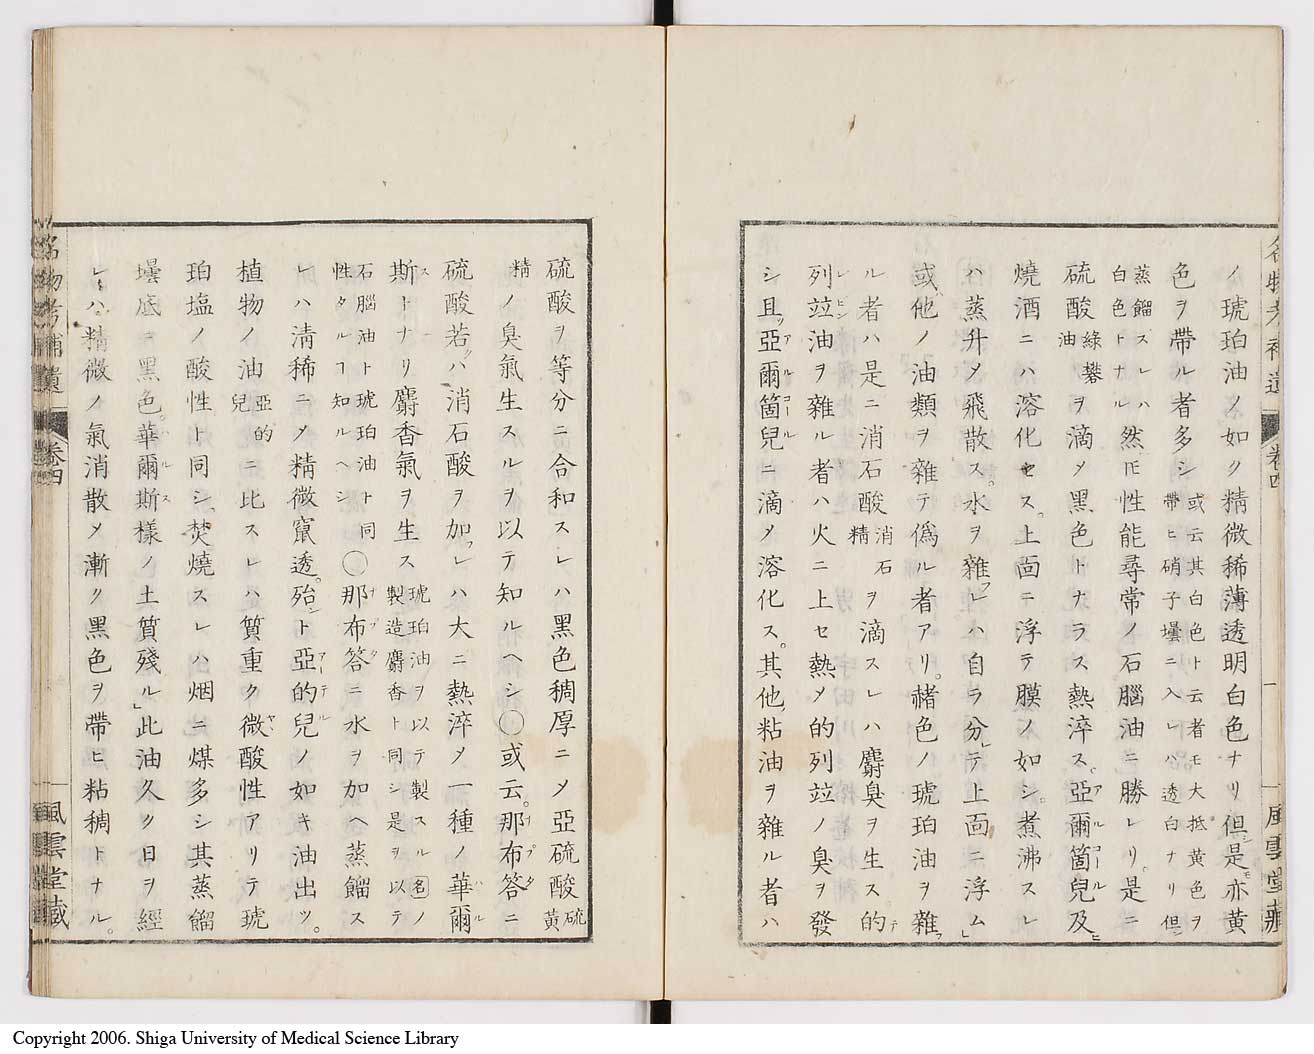 名物考補遺 卷四 一 風雲堂藏
ノ琥珀油ノ如ク精微稀薄透明白色ナリ但シ是モ亦黄
色ヲ帶ル者多シ或云其白色ト云者モ大抵黄色ヲ帶ヒ硝子壜ニ入レハ透白ナリ但シ
蒸餾スレハ白色トナル然𪜈性能尋常ノ石腦油ニ勝レリ。是ニ
硫酸綠礬油ヲ滴メ黑色トナラス熱淬ス。亞爾箇兒アルコール及ヒ
燒酒ニハ溶化セス。上面ニ浮テ膜ノ如シ。煮沸スレ
ハ蒸升メ飛散ス。水ヲ雜フレハ自ラ分レテ上面ニ浮ム」
或ハ他ノ油類ヲ雜テ僞ル者アリ。赭色ノ琥珀油ヲ雜フ
ル者ハ是ニ消石酸消石精ヲ滴スレハ麝臭ヲ生ス。的テ
列竝レビン油ヲ雜ル者ハ火ニ上セ熱メ的列竝ノ臭ヲ發
シ且ツ亞爾箇兒アルコールニ滴メ溶化ス。其他粘油ヲ雜ル者ハ
硫酸ヲ等分ニ合和スレハ黑色稠厚ニメ亞硫酸硫黄
精ノ臭氣生スルヲ以テ知ルヘシ〇或云。那布答ナプタニ
硫酸若クハ消石酸ヲ加フレハ大ニ熱淬メ一種ノ華爾ハル
斯ストナリ麝香氣ヲ生ス琥珀油ヲ以テ製スル名ノ製造麝香ト同シ是ヲ以テ
石腦油ト琥珀油ト同性タルヿ知ルヘシ〇那布答ナプタニ水ヲ加ヘ蒸餾ス
レハ淸稀ニメ精微竄透。殆ント亞的兒アーテルノ如キ油出ツ。
植物ノ油亞的兒ニ比スレハ質重ク微酸性アリテ琥
珀塩ノ酸性ト同シ、焚燒スレハ烟ニ煤多シ其蒸餾
壜底ニ黑色。華爾斯ハルス樣ノ土質殘ル」此油久ク日ヲ經
レハ精微ノ氣消散メ漸ク黑色ヲ帶ヒ粘稠トナル。
名物考補遺 卷四 風雲堂藏
Copyright 2006. Shiga University of Medical Science Library